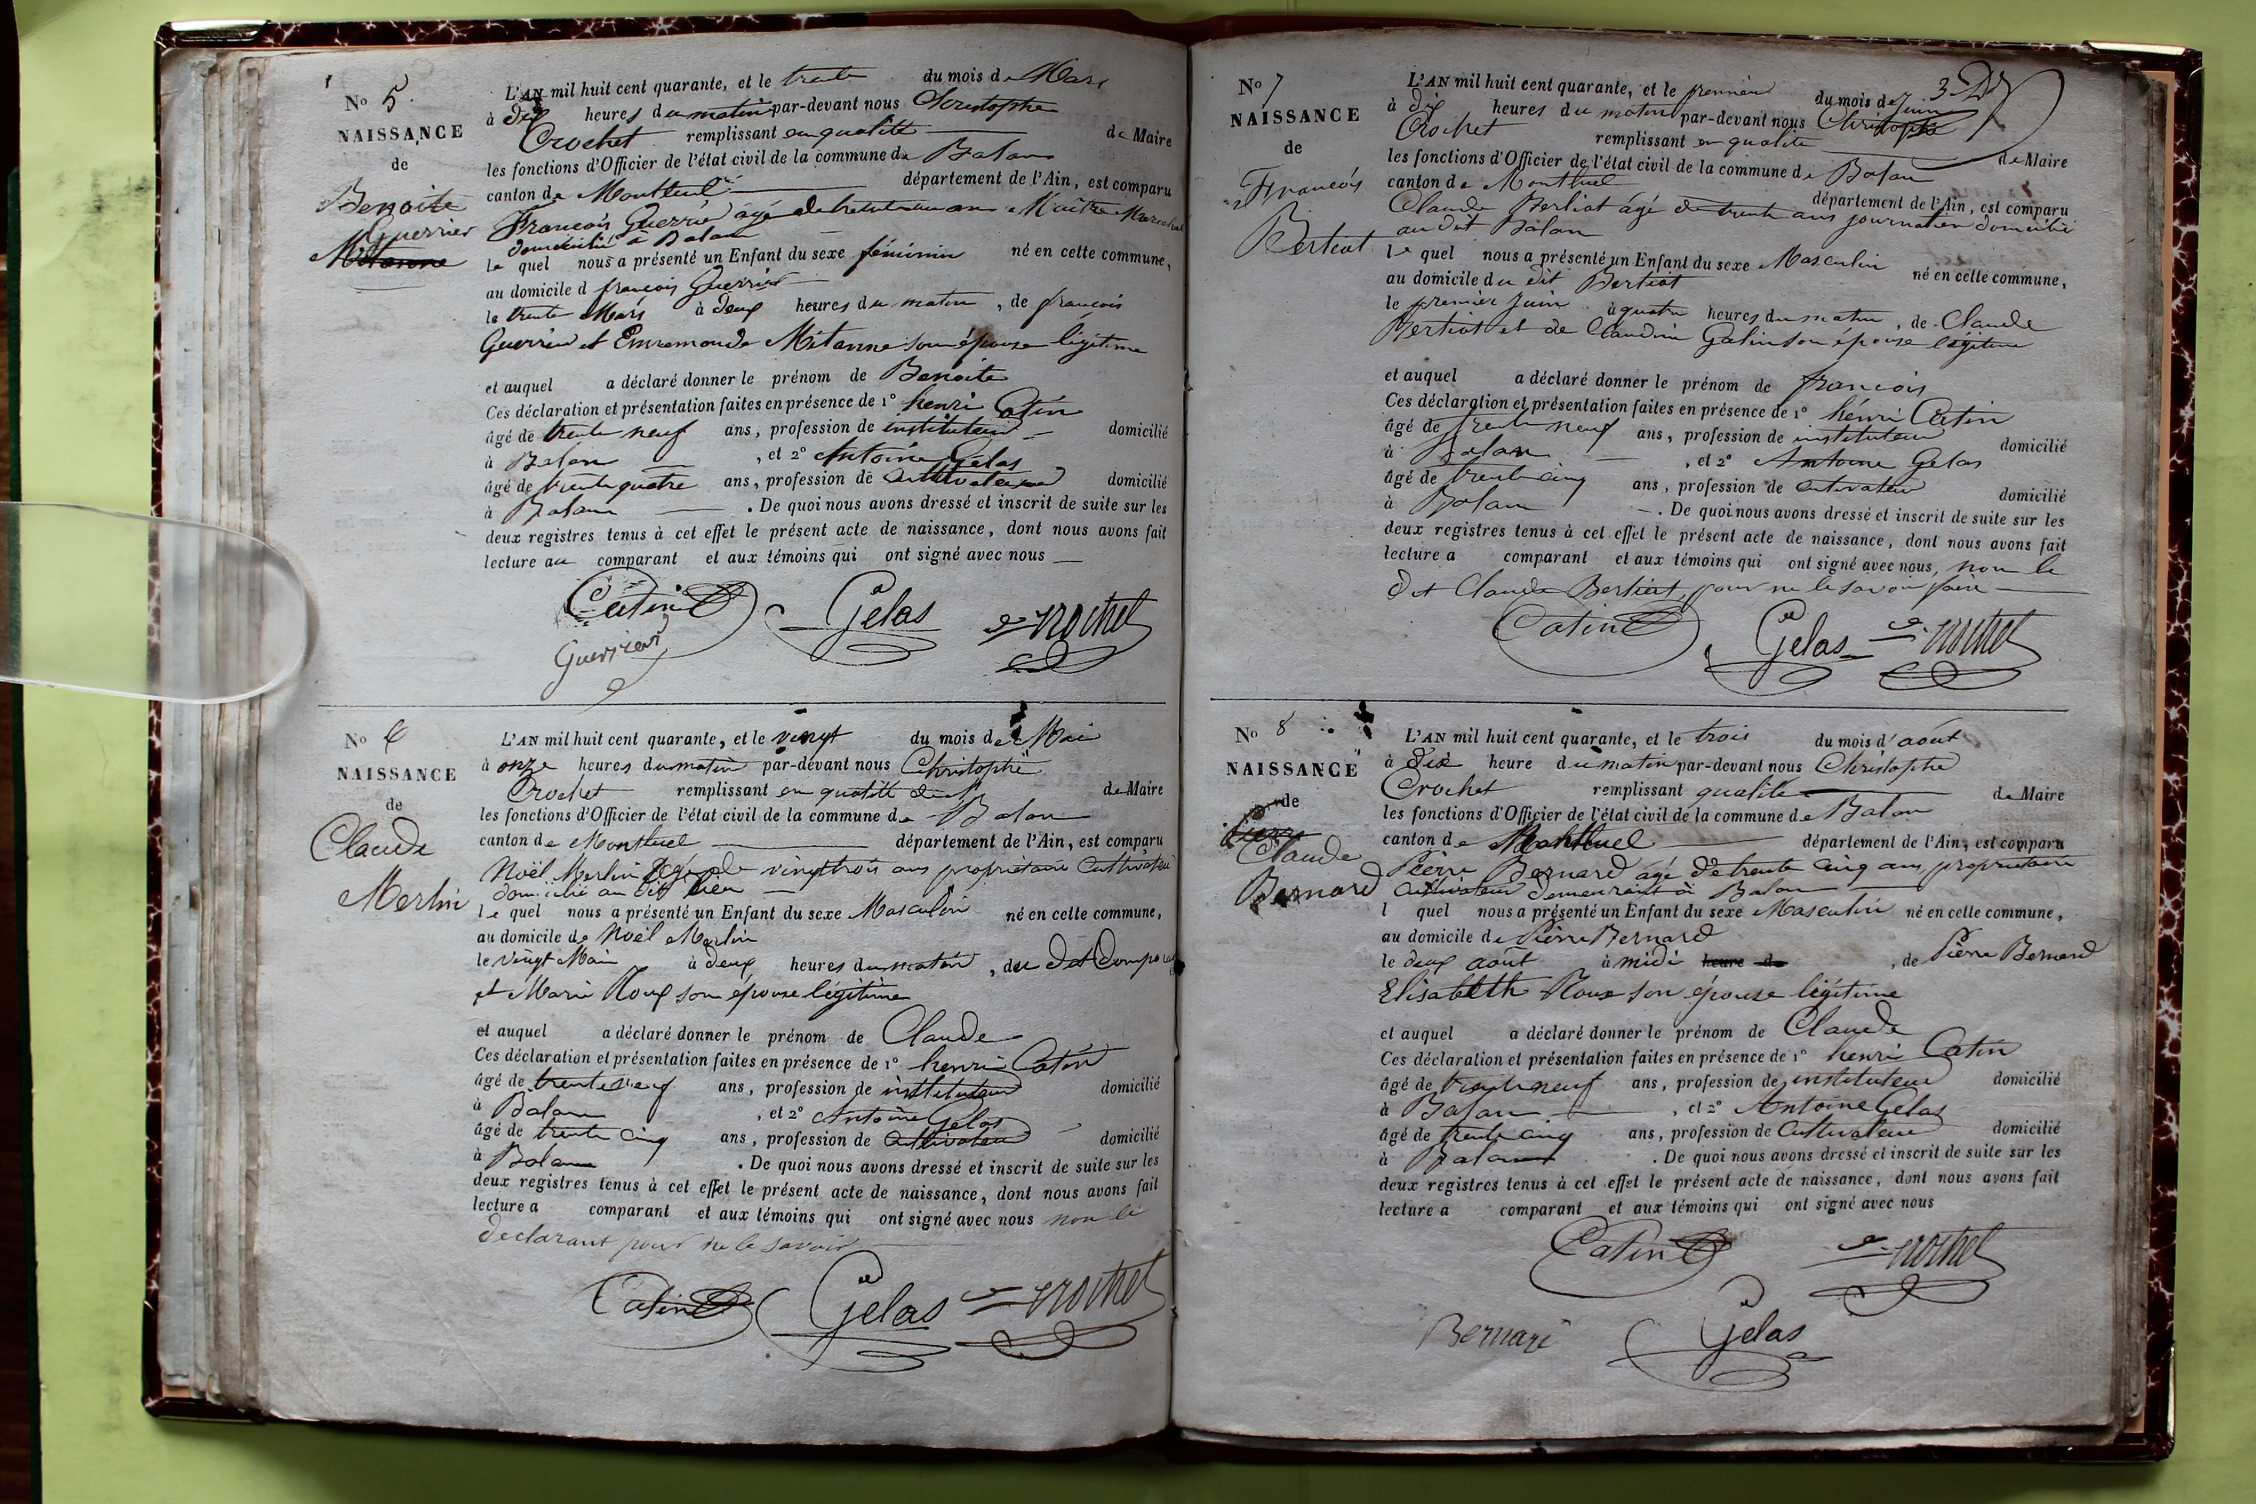 No 5.
NAISSANCE
de
Benoite
Guerrier
Mitanne
L'AN mil huit cent quarante, et le trente du mois de Mars
à dix heures du matin par-devant nous Christophe
Crochet remplissant en qualité de Maire
les fonctions d'Officier de l'état civil de la commune de Balan
canton de Montluel département de l'Ain, est comparu
François Guerrier âgé de Maître Marechal
domicilié à Balan
le quel nous a présenté un Enfant du sexe féminin né en cette commune,
au domicile d françois Guerrier
le trente Mars à deux heures du matin, de françois
Guerrier et Enremonde Mitanne son épouse légitime
et auquel a déclaré donner le prénom de Benoite
Ces déclaration et présentation faites en présence de 1° henri Catin
âgé de trente neuf ans, profession de instituteur domicilié
à Balan, et 2° Antoine Gelas
âgé de trente quatre ans, profession de Cultivateur domicilié
à Balan. De quoi nous avons dressé et inscrit de suite sur les
deux registres tenus à cet effet le présent acte de naissance, dont nous avons fait
lecture au comparant et aux témoins qui ont signé avec nous
Catin Gelas Crochet
Guerrier
No 6
NAISSANCE
de
Claude
Merlin
L'AN mil huit cent quarante, et le vingt du mois de Mai
à onze heures du matin par-devant nous Christophe
Crochet remplissant en qualité de Maire
les fonctions d'Officier de l'état civil de la commune de Balan
canton de Montluel département de l'Ain, est comparu
Noël Merlin âgé de vingt trois ans propriétaire Cultivateur
domicilié au dit lieu
le quel nous a présenté un Enfant du sexe Masculin né en cette commune,
au domicile de Noël Merlin
le vingt Mai à deux heures du matin, du dit Comparant
et Marie Roux son épouse légitime
et auquel a déclaré donner le prénom de Claude
Ces déclaration et présentation faites en présence de 1° henri Catin
âgé de trente neuf ans, profession de instituteur domicilié
à Balan, et 2° Antoine Gelas
âgé de trente cinq ans, profession de Cultivateur domicilié
à Balan. De quoi nous avons dressé et inscrit de suite sur les
deux registres tenus à cet effet le présent acte de naissance, dont nous avons fait
lecture a comparant et aux témoins qui ont signé avec nous non le
declarant pour ne le savoir
Catin Gelas Crochet
No 7
NAISSANCE
de
François
Bertiat
L'AN mil huit cent quarante, et le premier du mois de Juin
à dix heures du matin par-devant nous Christophe
Crochet remplissant en qualité de Maire
les fonctions d'Officier de l'état civil de la commune de Balan
canton de Montluel département de l'Ain, est comparu
Claude Bertiat âgé de trente ans journalier domicilié
au dit Balan
le quel nous a présenté un Enfant du sexe Masculin né en cette commune,
au domicile du dit Bertiat
le premier Juin à quatre heures du matin, de Claude
Bertiat et de Claudine Galin son épouse légitime
et auquel a déclaré donner le prénom de françois
Ces déclaration et présentation faites en présence de 1° hénri Catin
âgé de trente neuf ans, profession de instituteur domicilié
à Balan, et 2° Antoine Gelas
âgé de trente cinq ans, profession de Cultivateur domicilié
à Balan. De quoi nous avons dressé et inscrit de suite sur les
deux registres tenus à cet effet le présent acte de naissance, dont nous avons fait
lecture a comparant et aux témoins qui ont signé avec nous, non le
dit Claude Bertiat, pour ne le savoir faire
Catin Gelas Crochet
No 8
NAISSANCE
de
Claude
Bernard
L'AN mil huit cent quarante, et le trois du mois d'août
à dix heure du matin par-devant nous Christophe
Crochet remplissant qualité de Maire
les fonctions d'Officier de l'état civil de la commune de Balan
canton de Montluel département de l'Ain, est comparu
Pierre Bernard âgé de trente cinq ans, propriétaire
Cultivateur demeurant à Balan
l quel nous a présenté un Enfant du sexe Masculin né en cette commune,
au domicile de Pierre Bernard
le deux août à midi heure du, de Pierre Bernard
Elisabeth Roux son épouse légitime
et auquel a déclaré donner le prénom de Claude
Ces déclaration et présentation faites en présence de 1° henri Catin
âgé de trente neuf ans, profession de instituteur domicilié
à Balan, et 2° Antoine Gelas
âgé de trente cinq ans, profession de Cultivateur domicilié
à Balan. De quoi nous avons dressé et inscrit de suite sur les
deux registres tenus à cet effet le présent acte de naissance, dont nous avons fait
lecture a comparant et aux témoins qui ont signé avec nous
Catin Crochet
Bernard Gelas